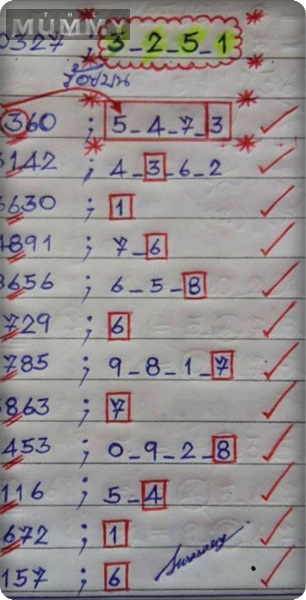 THE
MUMMY
0327 ; 3_2_5_1
ร้อยบน
360 ; 5_4_7_3
3142 ; 4_3_6_2
6630 ; 1
4891 ; 7_6
3656 ; 6_5_8
729 ; 6
785 ; 9_8_1_7
863 ; 7
453 ; 0_9_2_8
116 ; 5_4
672 ; 1
157 ; 6